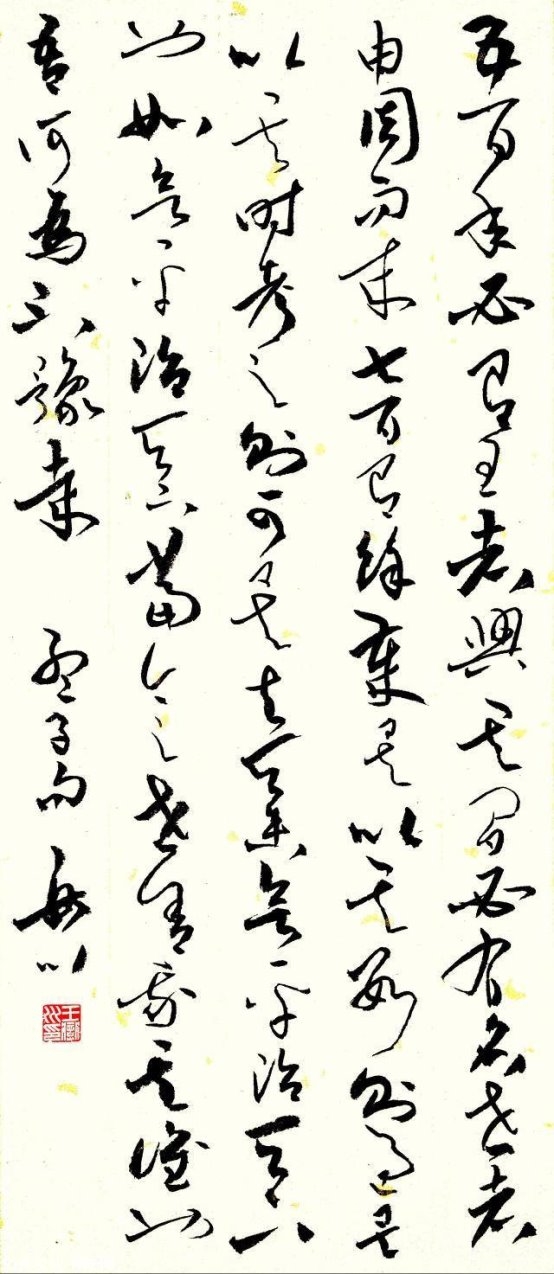 五百年必有王者興其間必有名世者
由周而来七百有餘歲矣以其數則過矣
以其時考之則可矣夫天未欲平治天下
也如欲平治天下當今之世舍我其誰也
吾何為不豫哉 孟子句